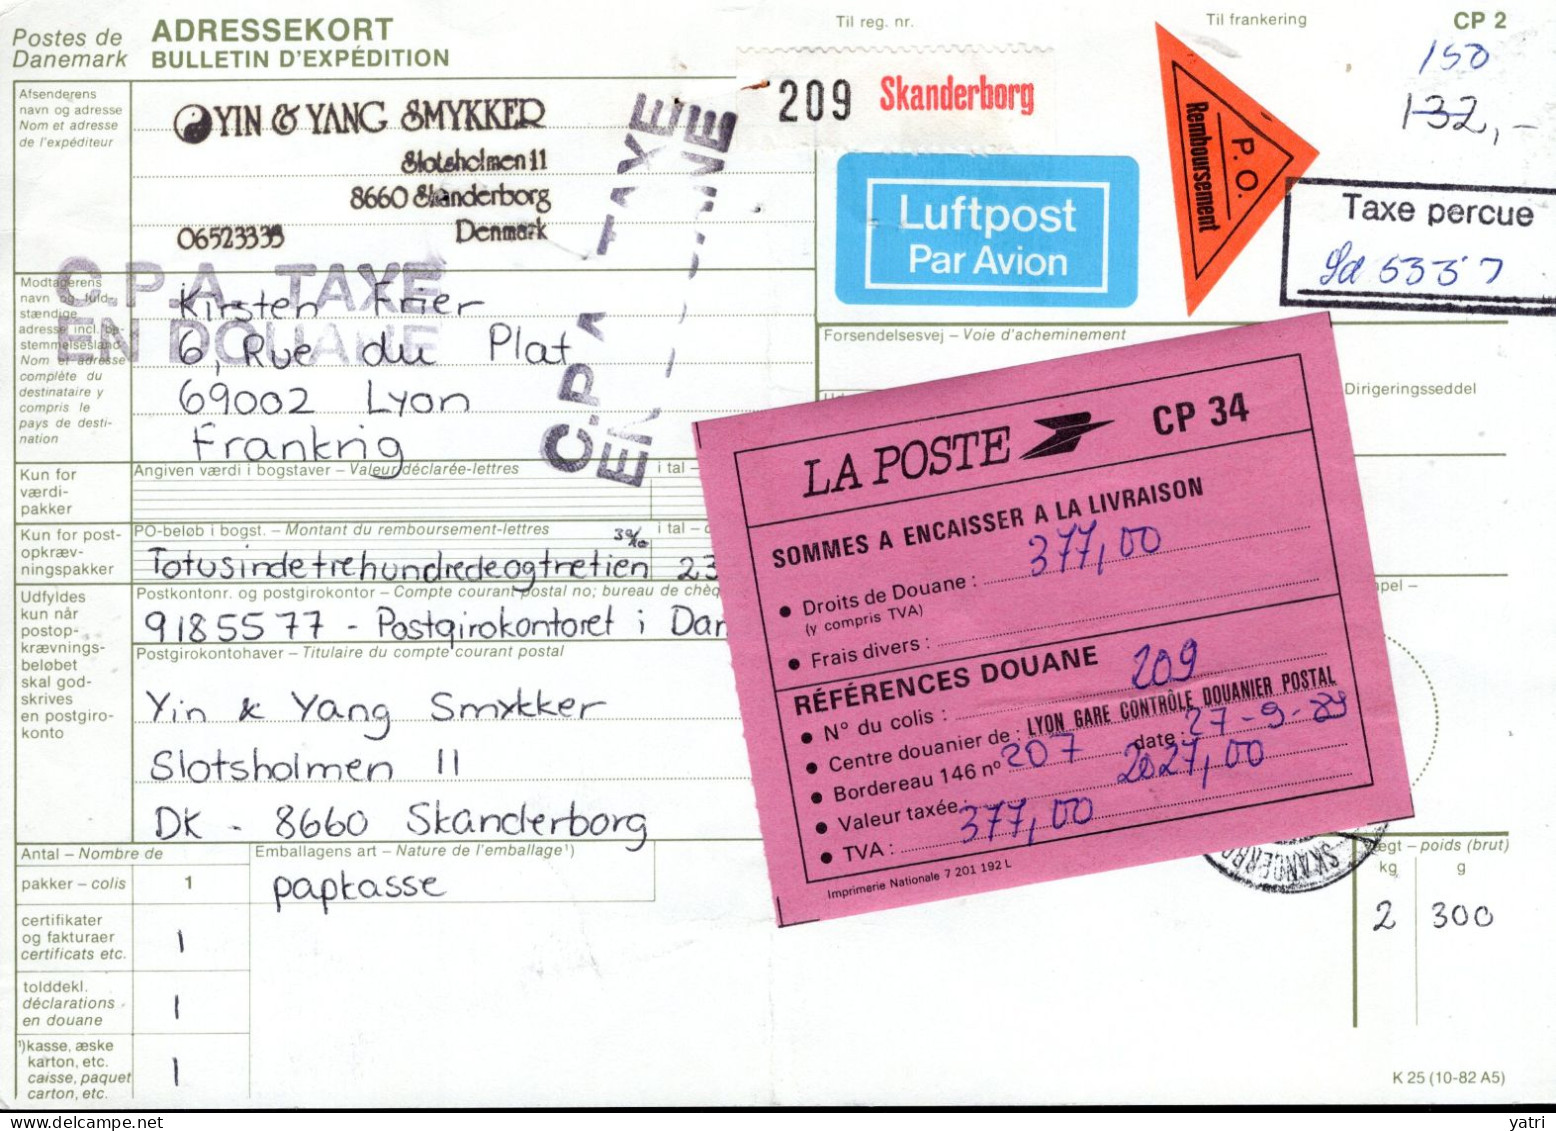 Postes de
Danemark
ADRESSEKORT
BULLETIN D'EXPÉDITION
Til reg. nr.
Til frankering
CP 2
150
132,-
209 Skanderborg
P. O.
Remboursement
Luftpost
Par Avion
Taxe percue
Afsenderens
navn og adresse
Nom et adresse
de l'expéditeur
YIN & YANG SMYKKER
Slotsholmen 11
8660 Skanderborg
06523339 Denmark
C.P.A. TAXE
EN DOUANE
C.P.A TAXE
Modtagerens
navn og fuld-
stændige
adresse incl. be-
stemmelsesland
Nom et adresse
complète du
destinataire y
compris le
pays de desti-
nation
Kirsten Frier
6, Rue du Plat
69002 Lyon
Frankrig
Forsendelsesvej – Voie d'acheminement
Dirigeringsseddel
Kun for
værdi-
pakker
Angiven værdi i bogstaver – Valeur déclarée-lettres
i tal –
Kun for post-
opkræv-
ningspakker
PO-beløb i bogst. – Montant du remboursement-lettres
i tal –
Totusindetrehundredeogtretien 23
Udfyldes
kun når
postop-
krævnings-
beløbet
skal god-
skrives
en postgiro-
konto
Postkontonr. og postgirokontor – Compte courant postal no; bureau de chèq
9185577 - Postgirokontoret i Dan
Postgirokontohaver – Titulaire du compte courant postal
Yin & Yang Smykker
Slotsholmen 11
DK - 8660 Skanderborg
LA POSTE CP 34
SOMMES A ENCAISSER A LA LIVRAISON
● Droits de Douane : 377,00
(y compris TVA)
● Frais divers :
RÉFÉRENCES DOUANE
● N° du colis : 209
● Centre douanier de : LYON GARE CONTRÔLE DOUANIER POSTAL
● Bordereau 146 n° 207 date : 27-9-89
● Valeur taxée : 2027,00
● TVA : 377,00
Imprimerie Nationale 7 201 192 L
Antal – Nombre de
pakker – colis 1
Emballagens art – Nature de l'emballage¹)
papkasse
certifikater
og fakturaer
certificats etc.
1
tolddekl.
déclarations
en douane
1
¹)kasse, æske
karton, etc.
caisse, paquet
carton, etc.
1
– poids (brut)
kg g
2 300
K 25 (10-82 A5)
delcampe.net
yatri